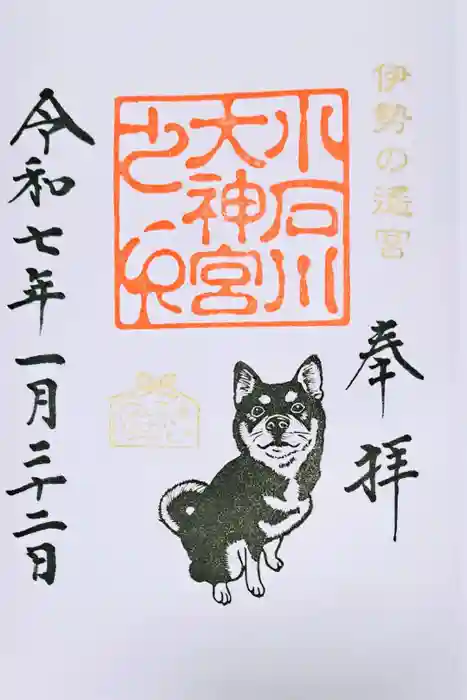 伊勢の遥宮
奉拝
小石川
大神宮
之印
令和七年一月二十二日